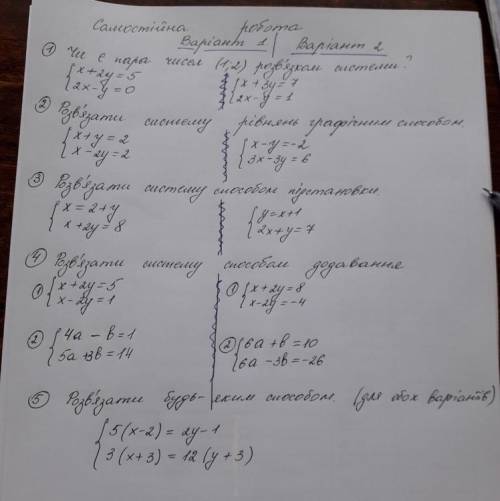 Самостійна робота
Варіант 1 | Варіант 2
① Чи є пара чисел (1;2) розв'язком системи?
{x+2y=5 {x+3y=7
{2x-y=0 {2x-y=1
② Розв'язати систему рівнянь графічним способом.
{x+y=2 {x-y=-2
{x-2y=2 {3x-3y=6
③ Розв'язати систему способом підстановки
{x=2+y {y=x+1
{x+2y=8 {2x+y=7
④ Розв'язати систему способом додавання
① {x+2y=5 ① {x+2y=8
{x-2y=1 {x-2y=-4
② {4a-b=1 ② {6a+b=10
{5a+3b=14 {6a-3b=-26
⑤ Розв'язати будь-яким способом. (для обох варіантів)
{5(x-2)=2y-1
{3(x+3)=12(y+3)